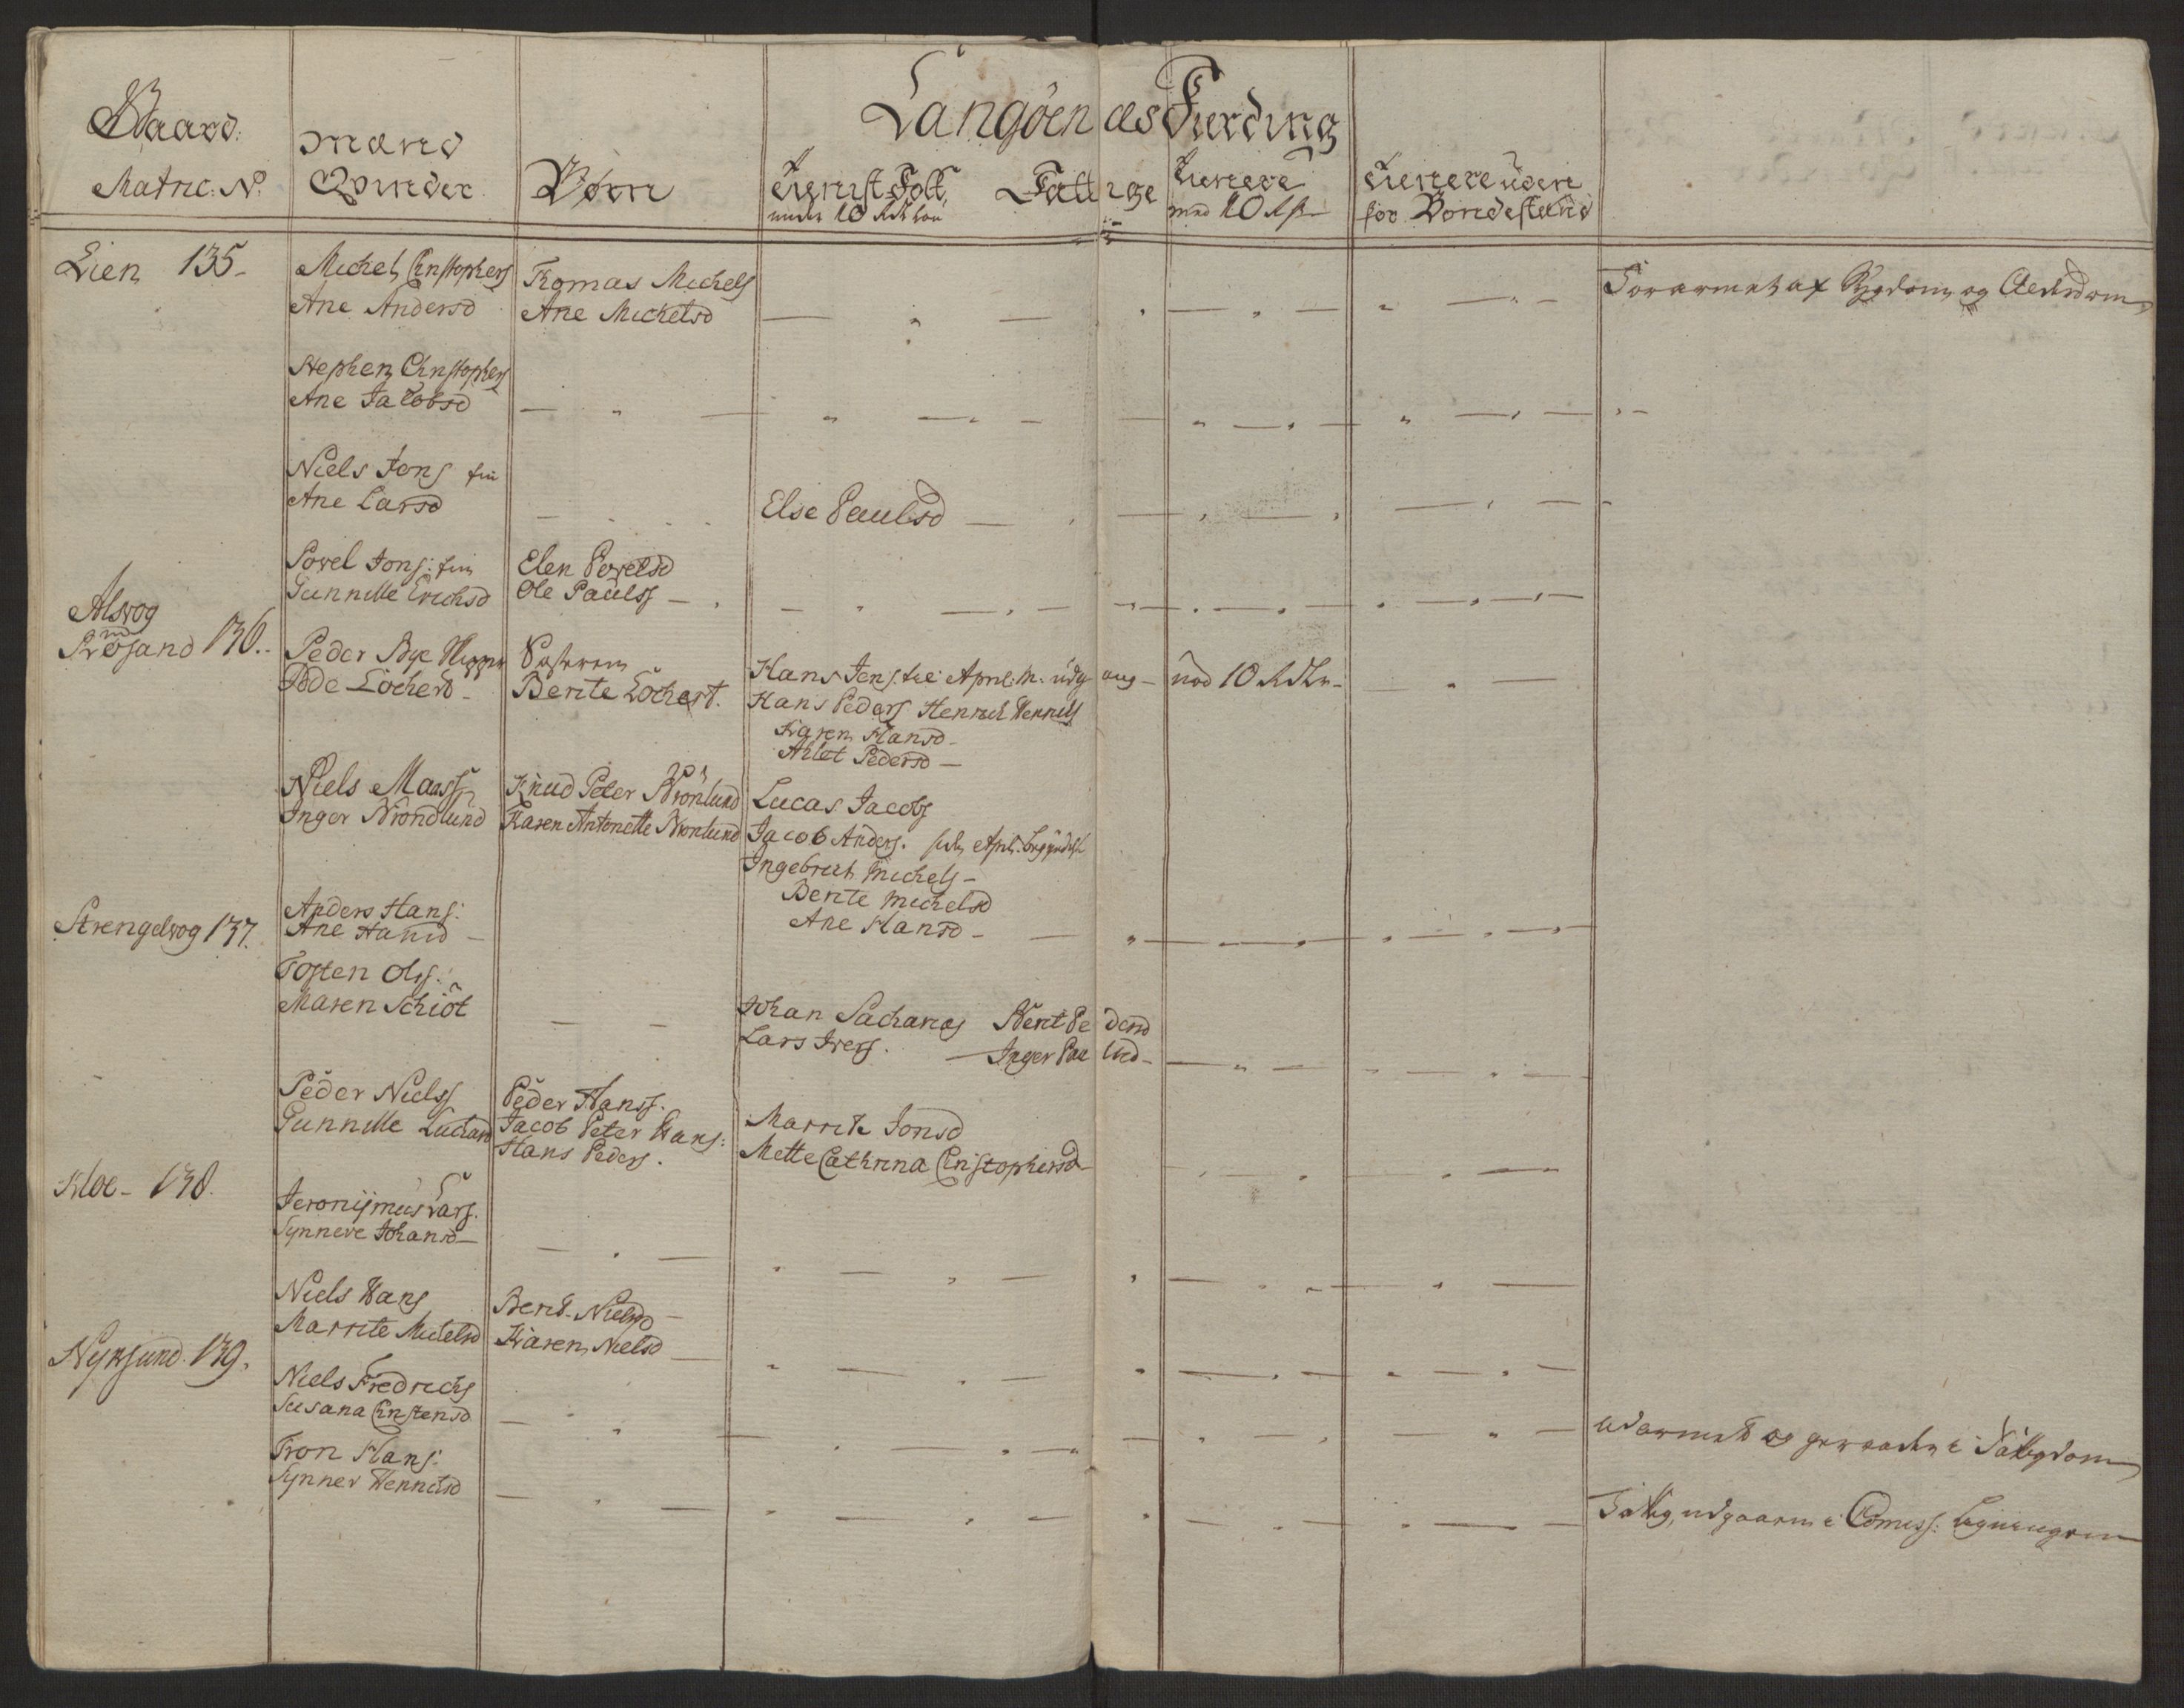 Langøen æs Fierding
Gaard:
Matric: N:
Mænd
Qvinder
Børn
Tienist Folk
under 10 Rdl løn
Fattige
Tienere
med 10 Rdr
Tienere uden
for Bondestand
Lien 135-
Michel Christophers
Ane Andersd
Thomas Michels
Ane Michelsd
Forarmet af Sygdom og Alderdom
Stephen Christophers
Ane Jacobsd
Niels Jons fin
Ane Larsd
Else Paulsd
Povel Jons: fin
Gunnille Erichsd
Elen Povelsd
Ole Paulss
Alsvog
Røsand 136..
Peder Bye
Lochert
Bente Lochert.
Hans Jens
10 Rdlr
Hans Peders Henrich
Karen Hansd
Ahlet Pedersd
Niels Maass
Inger Brondlund
Knud Peter Bronlund
Karen Antonette Bronlund
Lucas Jacobs
Jacob Anders.
Ingebrich Michels
Bente Michelsd
Ane Hansd
Strengelvog 137.
Anders Hans:
Ane Hansd
Tosten Olss:
Maren Schiöt
Johan Sacharias Berit Pedersd
Lars Ivers. Inger Paulsd
Peder Nielss
Gunnille
Peder Hanss.
Jacob Peter Hans:
Hans Peders.
Marrite Jonsd
Mette Cathrina Christophersd
Kloe- 138.
Jeronijmus Lars.
Synneve Johansd
Niels Hans
Marrite Michelsd
Berit Nielsd
Karen Nielsd
Nyksund. 139.
Niels Fredrichs
Susana Christensd
udarmet og geraaden i Fattigdom
Tron Hans:
Synnev
Fattig, udgaaen i Comiss: